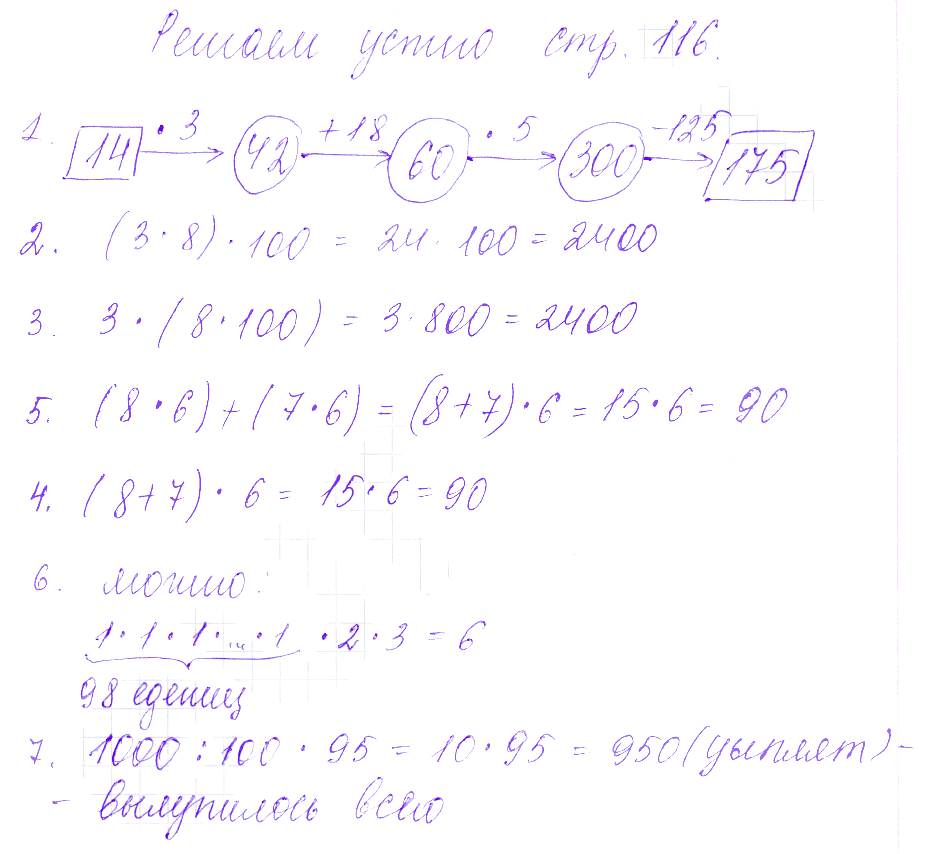 Решаем устно стр. 116.
1. 14 · 3 → 42 + 18 → 60 · 5 → 300 - 125 → 175
2. (3 · 8) · 100 = 24 · 100 = 2400
3. 3 · (8 · 100) = 3 · 800 = 2400
5. (8 · 6) + (7 · 6) = (8 + 7) · 6 = 15 · 6 = 90
4. (8 + 7) · 6 = 15 · 6 = 90
6. можно:
1 · 1 · 1 · ... · 1 · 2 · 3 = 6
98 едениц
7. 1000 : 100 · 95 = 10 · 95 = 950 (цыплят) -
- вылупилось всего